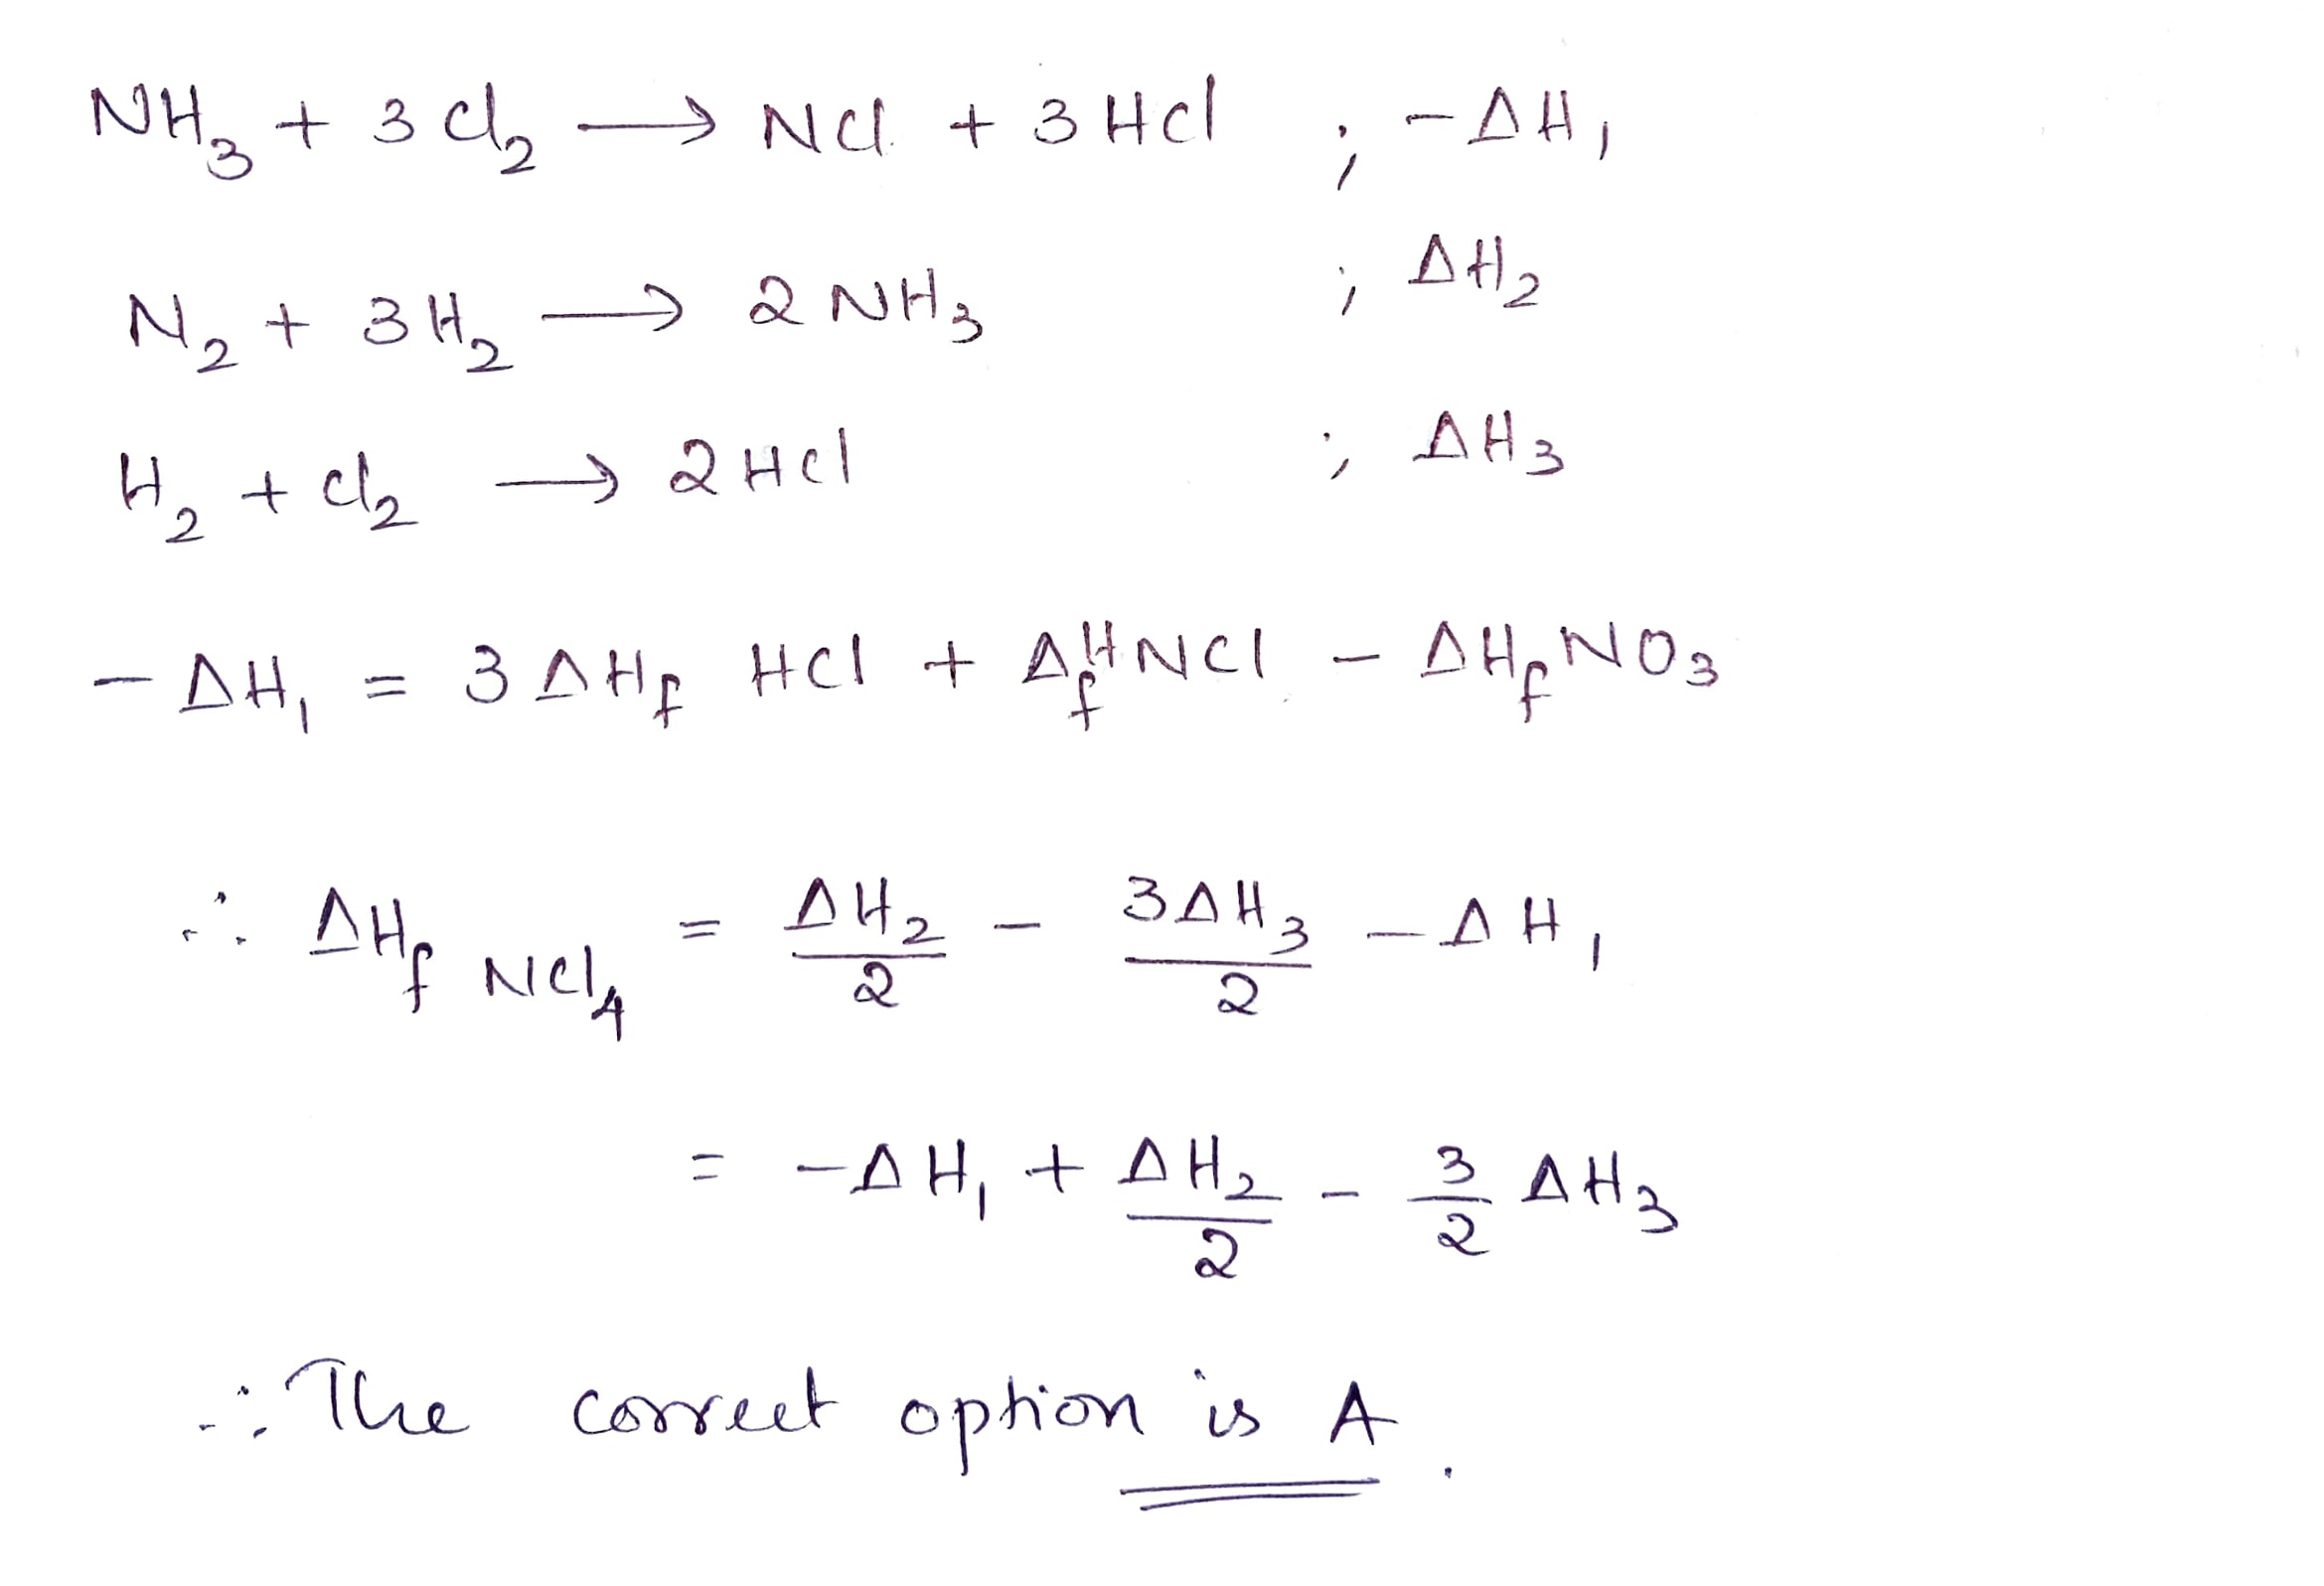 NH₃ + 3 Cl₂ ⟶ NCl + 3 HCl ; -ΔH₁
N₂ + 3 H₂ ⟶ 2 NH₃ ; ΔH₂
H₂ + Cl₂ ⟶ 2 HCl ; ΔH₃
-ΔH₁ = 3 ΔHf HCl + ΔfH NCl - ΔHf NO₃
∴ ΔHf NCl₄ = ΔH₂/2 - 3ΔH₃/2 - ΔH₁
= -ΔH₁ + ΔH₂/2 - 3/2 ΔH₃
∴ The correct option is A.